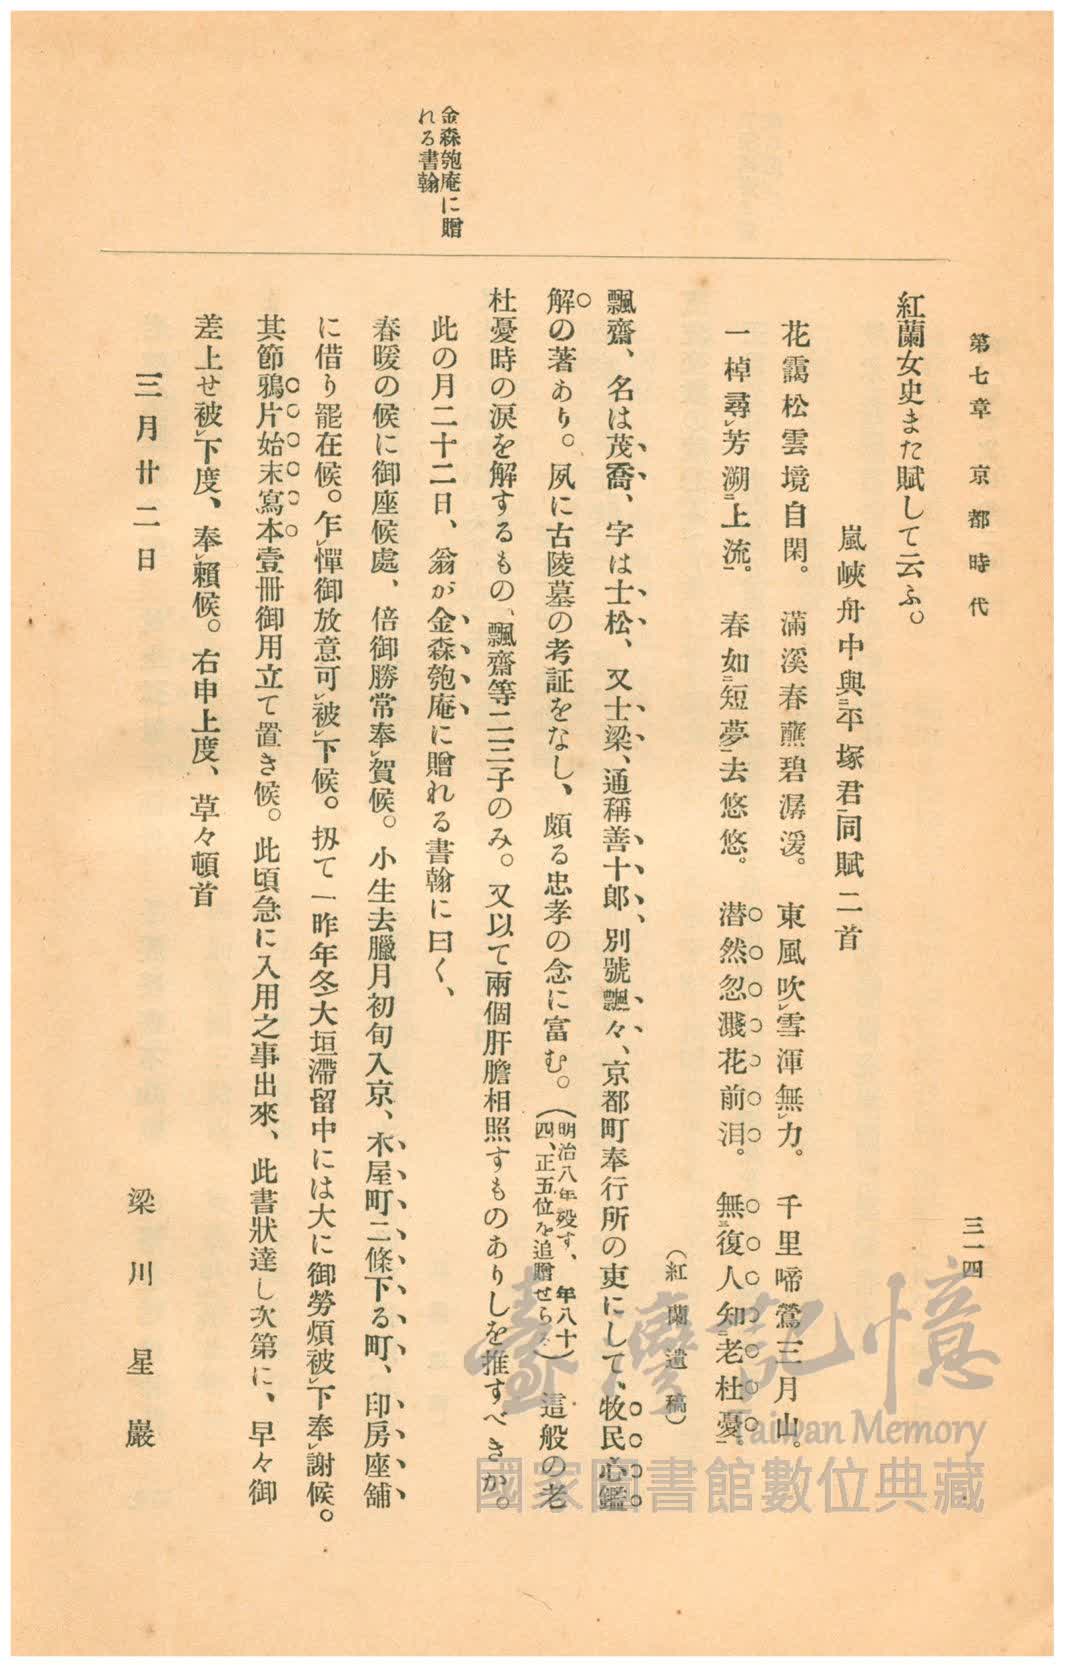 第七章 京都時代
三一四
紅蘭女史また賦して云ふ。
嵐峽舟中與二平塚君一同賦二首
花靄松雲境自閑。 滿溪春蘸碧潺湲。 東風吹レ雪渾無レ力。 千里啼鶯三月山。
一棹尋レ芳溯二上流一。 春如二短夢一去悠悠。 潜然忽濺花前泪。 無三復人知二老杜憂一。
(紅蘭遺稿)
飄齋、名は茂喬、字は士松、又士梁、通稱善十郎、別號飄々、京都町奉行所の吏にして、牧民心鑑
解の著あり。夙に古陵墓の考証をなし、頗る忠孝の念に富む。(明治八年歿す、年八十四、正五位を追贈せらる) 這般の老
杜憂時の涙を解するもの、飄齋等二三子のみ。又以て兩個肝膽相照すものありしを推すべきか。
金森匏庵に贈
れる書翰
此の月二十二日、翁が金森匏庵に贈れる書翰に曰く、
春暖の候に御座候處、倍御勝常奉レ賀候。小生去臘月初旬入京、木屋町二條下る町、印房座舖
に借り罷在候。乍レ憚御放意可レ被レ下候。扨て一昨年冬大垣滯留中には大に御勞煩被レ下奉レ謝候。
其節鴉片始末寫本壹冊御用立て置き候。此頃急に入用之事出來、此書狀達し次第に、早々御
差上せ被レ下度、奉レ賴候。右申上度、草々頓首
三月廿二日
梁川星巖
臺灣記憶
Taiwan Memory
國家圖書館數位典藏